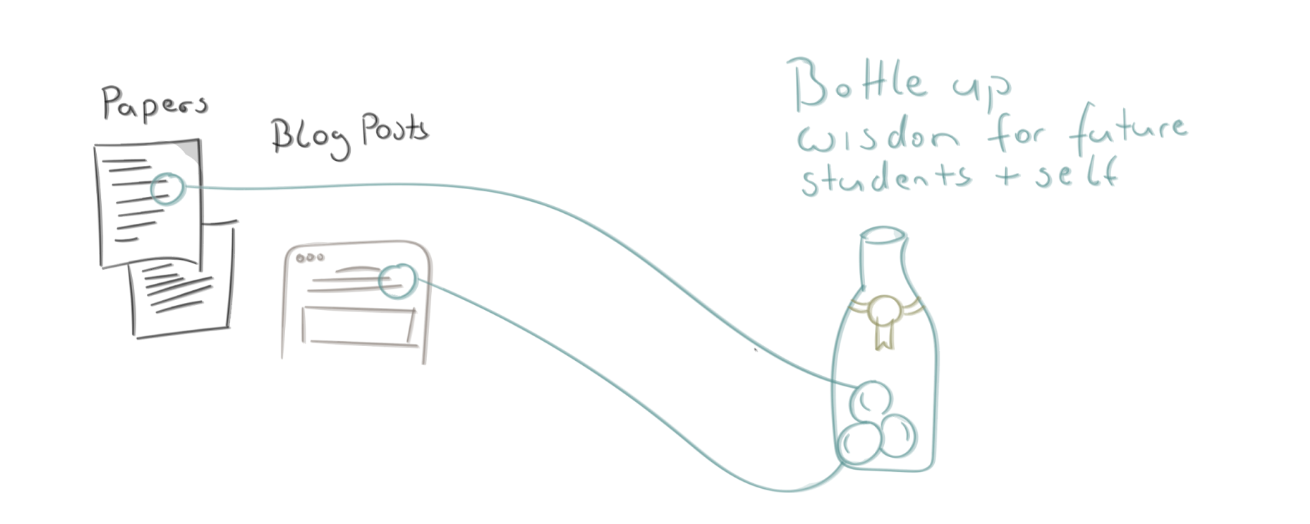 Papers
Blog Posts
Bottle up
wisdom for future
students + self